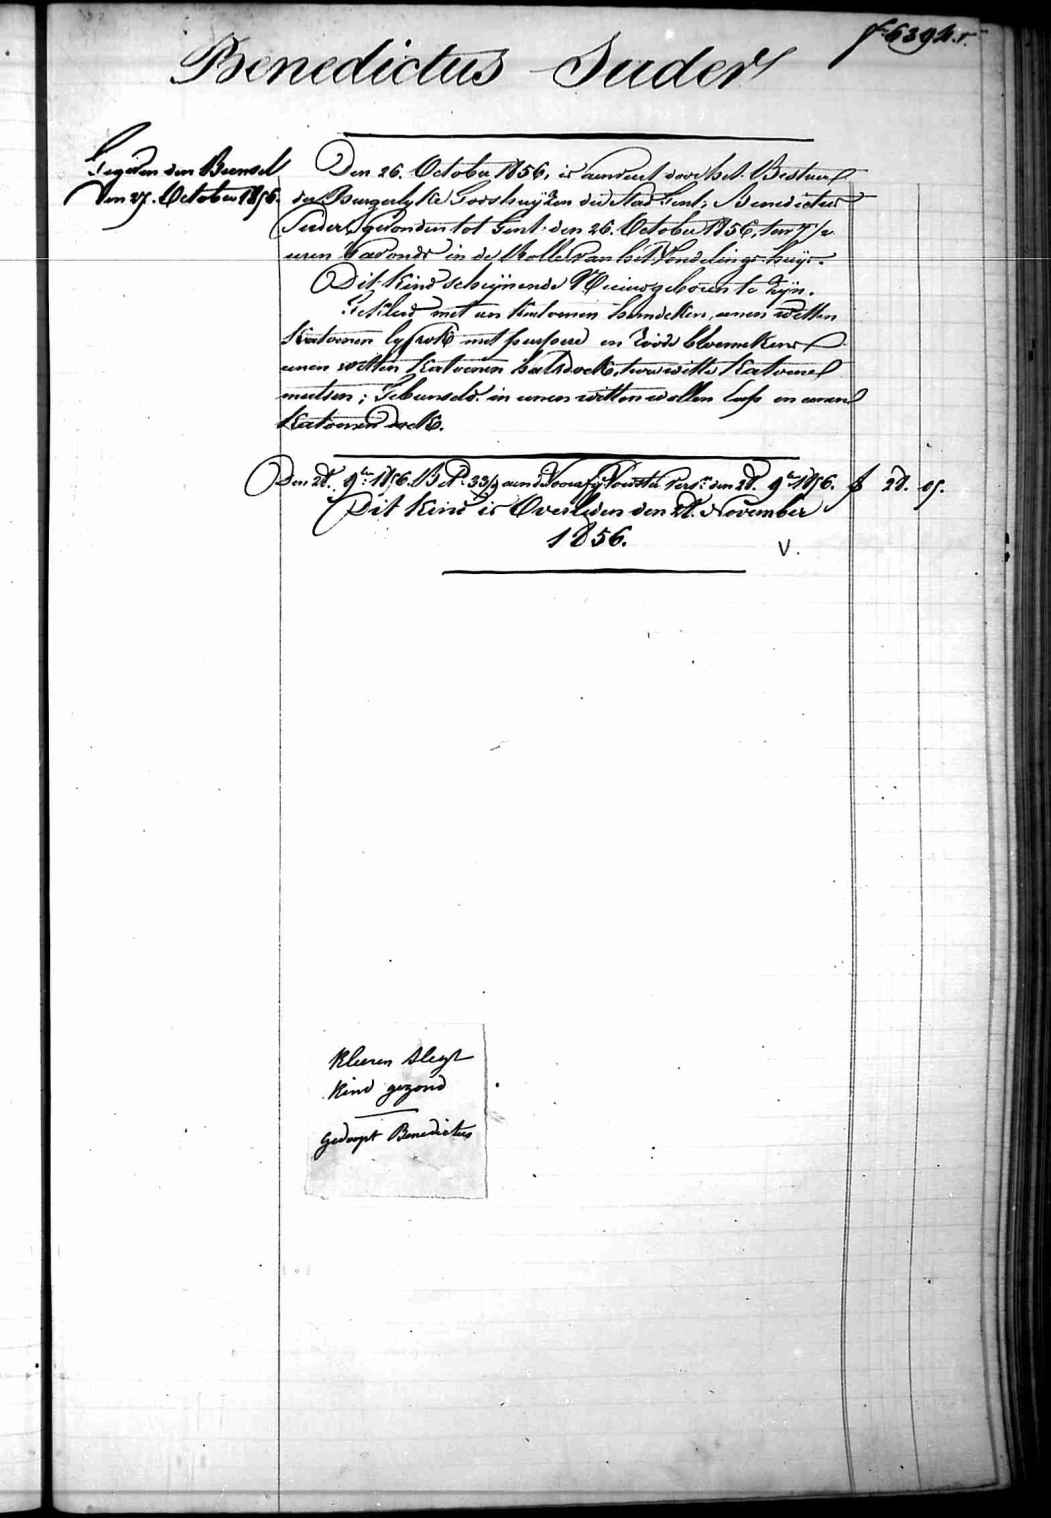 Benedictus Suder
Gegeven den Bunsel
den 27. October 1856.
Den 26. October 1856, is aenveert door het Bestuer
der Burgerlyke Godshuyzen der stad Gent, Benedictus
Suder, gevonden tot Gent den 26. October 1856, ten
uren 's avonds in de Rolle van het Vondelings-huys.
Dit Kind scheynende Nieuwgeboren te zyn.
Gekleed met een katoenen hemdeken, eenen witten
Katoenen lyfrok met purpere en roode bloemekens
eenen witten katoenen halsdoek, twee witte katoene
mutsen; Gebunseld in eenen witten wollen lap en eenen
Katoenen doek.
Den 28. 9ber 1856. Bet. 33/ aend den 28. 9ber 1856. f 28. 05.
Dit Kind is Overleden den 28. November
1856.
V.
Kleeren slegt
Kind gezond
gedoopt Benedictus